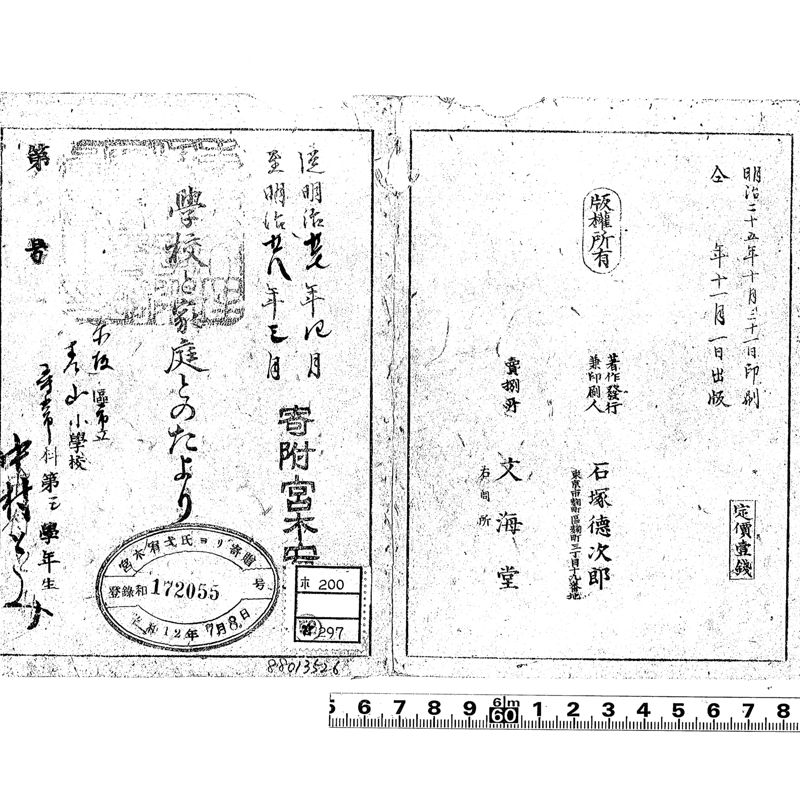 明治二十五年十月三十一日印刷
仝 年十一月一日出版
定價壹錢
版權所有
著作發行
兼印刷人
石塚德次郎
東京市麹町區麹町二丁目十九番地
賣捌所
文海堂
右同所
從明治廿七年四月
至明治廿八年三月
寄附宮木
學校と家庭とのたより
第 号
赤坂 區市立
青山小學校
尋常科第三學年生
中村
宮木宥弌氏ヨリ寄贈
登錄和 172055 号
昭和12年7月8日
ホ 200
297
88013526
5 6 7 8 9 6|m 60 1 2 3 4 5 6 7 8